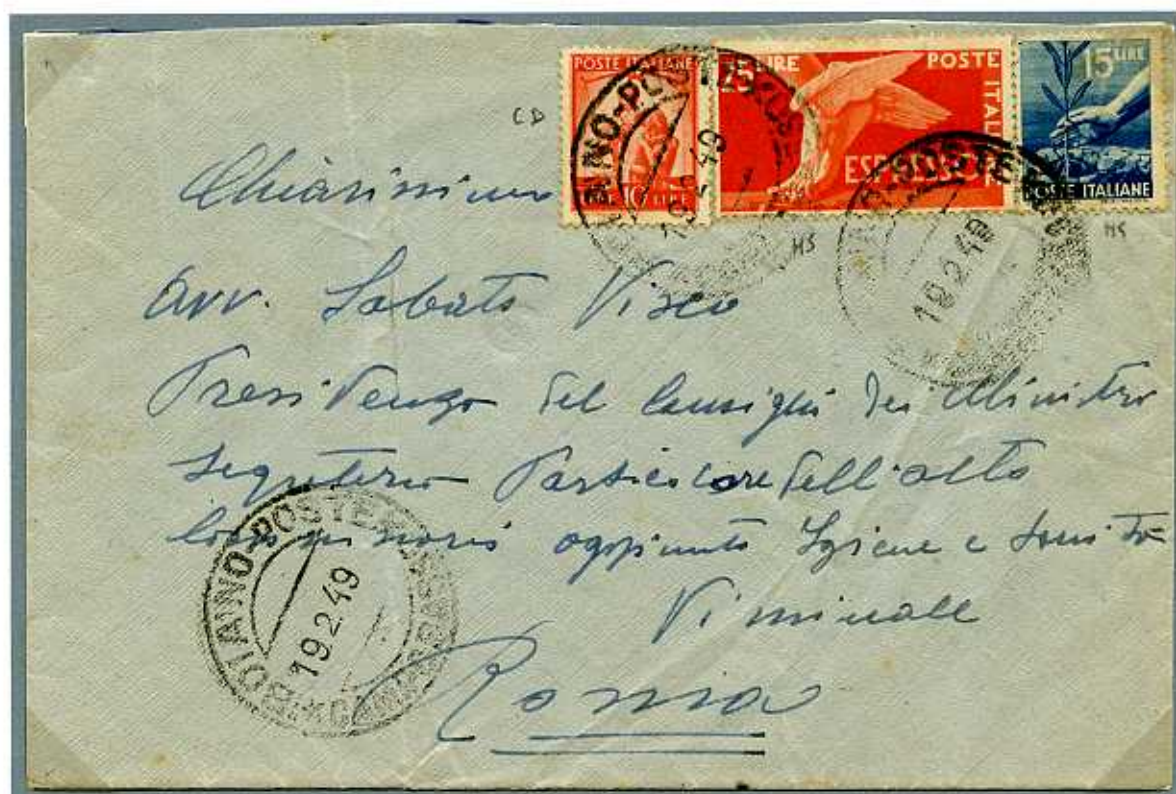 POSTE ITALIANE
10 LIRE
25 LIRE POSTE ITAL
ESPRESSO
15 LIRE
POSTE ITALIANE
CD
HS
HS
19.2.49
19.2.49
Chiarissimo
Avv. Sabato Visco
Presidenza del Consiglio dei Ministri
Segreteria Particolare dell'alto
aggiunto Igiene e Sanità
Viminale
Roma
BOIANO-POSTE
19.2.49